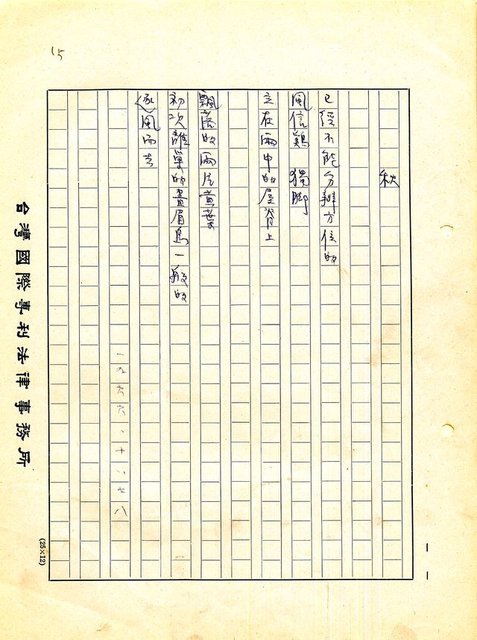 15
秋
已經不能分辨方位的
風信鷄 獨脚
立在雨中的屋脊上
飄落的兩片黃葉
初次離巢的畫眉鳥一般的
逐風而去
一九六六、十、七八
台灣國際專利法律事務所
(25×12)